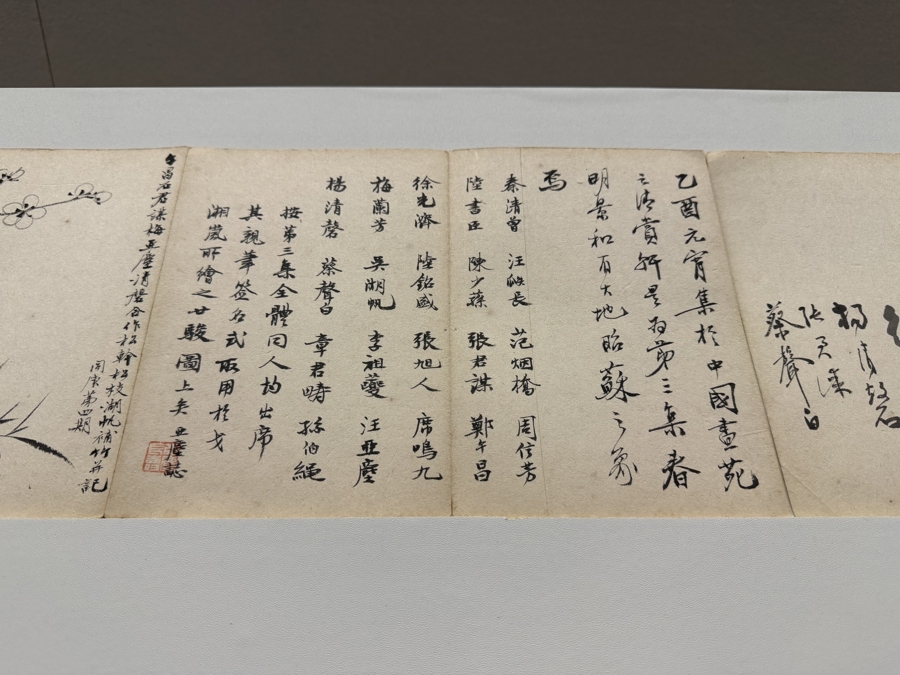 楊清磬
蔡聲白
乙酉元宵集於中國畫苑
之清賞解是為第三集春
明景和有大地昭蘇之象
焉
秦清曾 汪 長 范烟橋 周信芳
陸書臣 陳少蓀 張君謀 鄭午昌
徐光濟 陸銘盛 張旭人 席鳴九
梅蘭芳 吳湖帆 李祖夔 汪亞塵
楊清磬 蔡聲白 章君疇 孫伯繩
按第三集全體同人均出席
其親筆簽名式取用於戈
湘嵐所繪之廿駿圖上矣 亞塵誌
午昌石君謀梅亞塵清磬合作松幹松枝湖帆補竹并記
同庚第四期